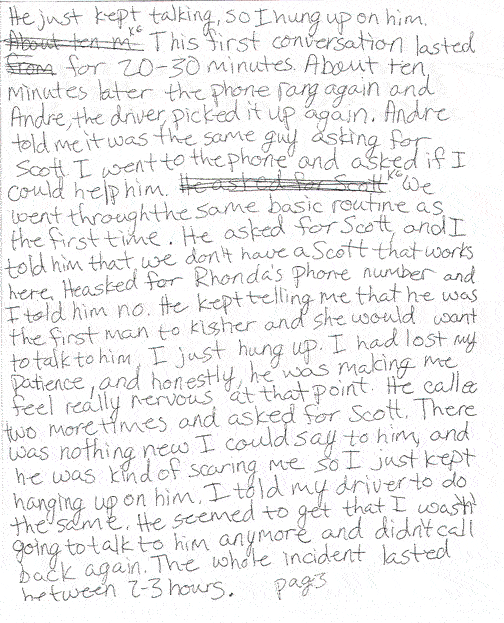 He just kept talking, so I hung up on him.
About ten m KG This first conversation lasted
from for 20-30 minutes. About ten
minutes later the phone rang again and
Andre, the driver, picked it up again. Andre
told me it was the same guy asking for
Scott. I went to the phone and asked if I
could help him. He asked for Scott KG We
went through the same basic routine as
the first time. He asked for Scott, and I
told him that we don't have a Scott that works
here. He asked for Rhonda's phone number and
I told him no. He kept telling me that he was
the first man to kis her and she would want
to talk to him. I just hung up. I had lost my
patience, and honestly, he was making me
feel really nervous at that point. He called
two more times and asked for Scott. There
was nothing new I could say to him, and
he was kind of scaring me so I just kept
hanging up on him. I told my driver to do
the same. He seemed to get that I wasn't
going to talk to him anymore and didn't call
back again. The whole incident lasted
between 2-3 hours. pag 3